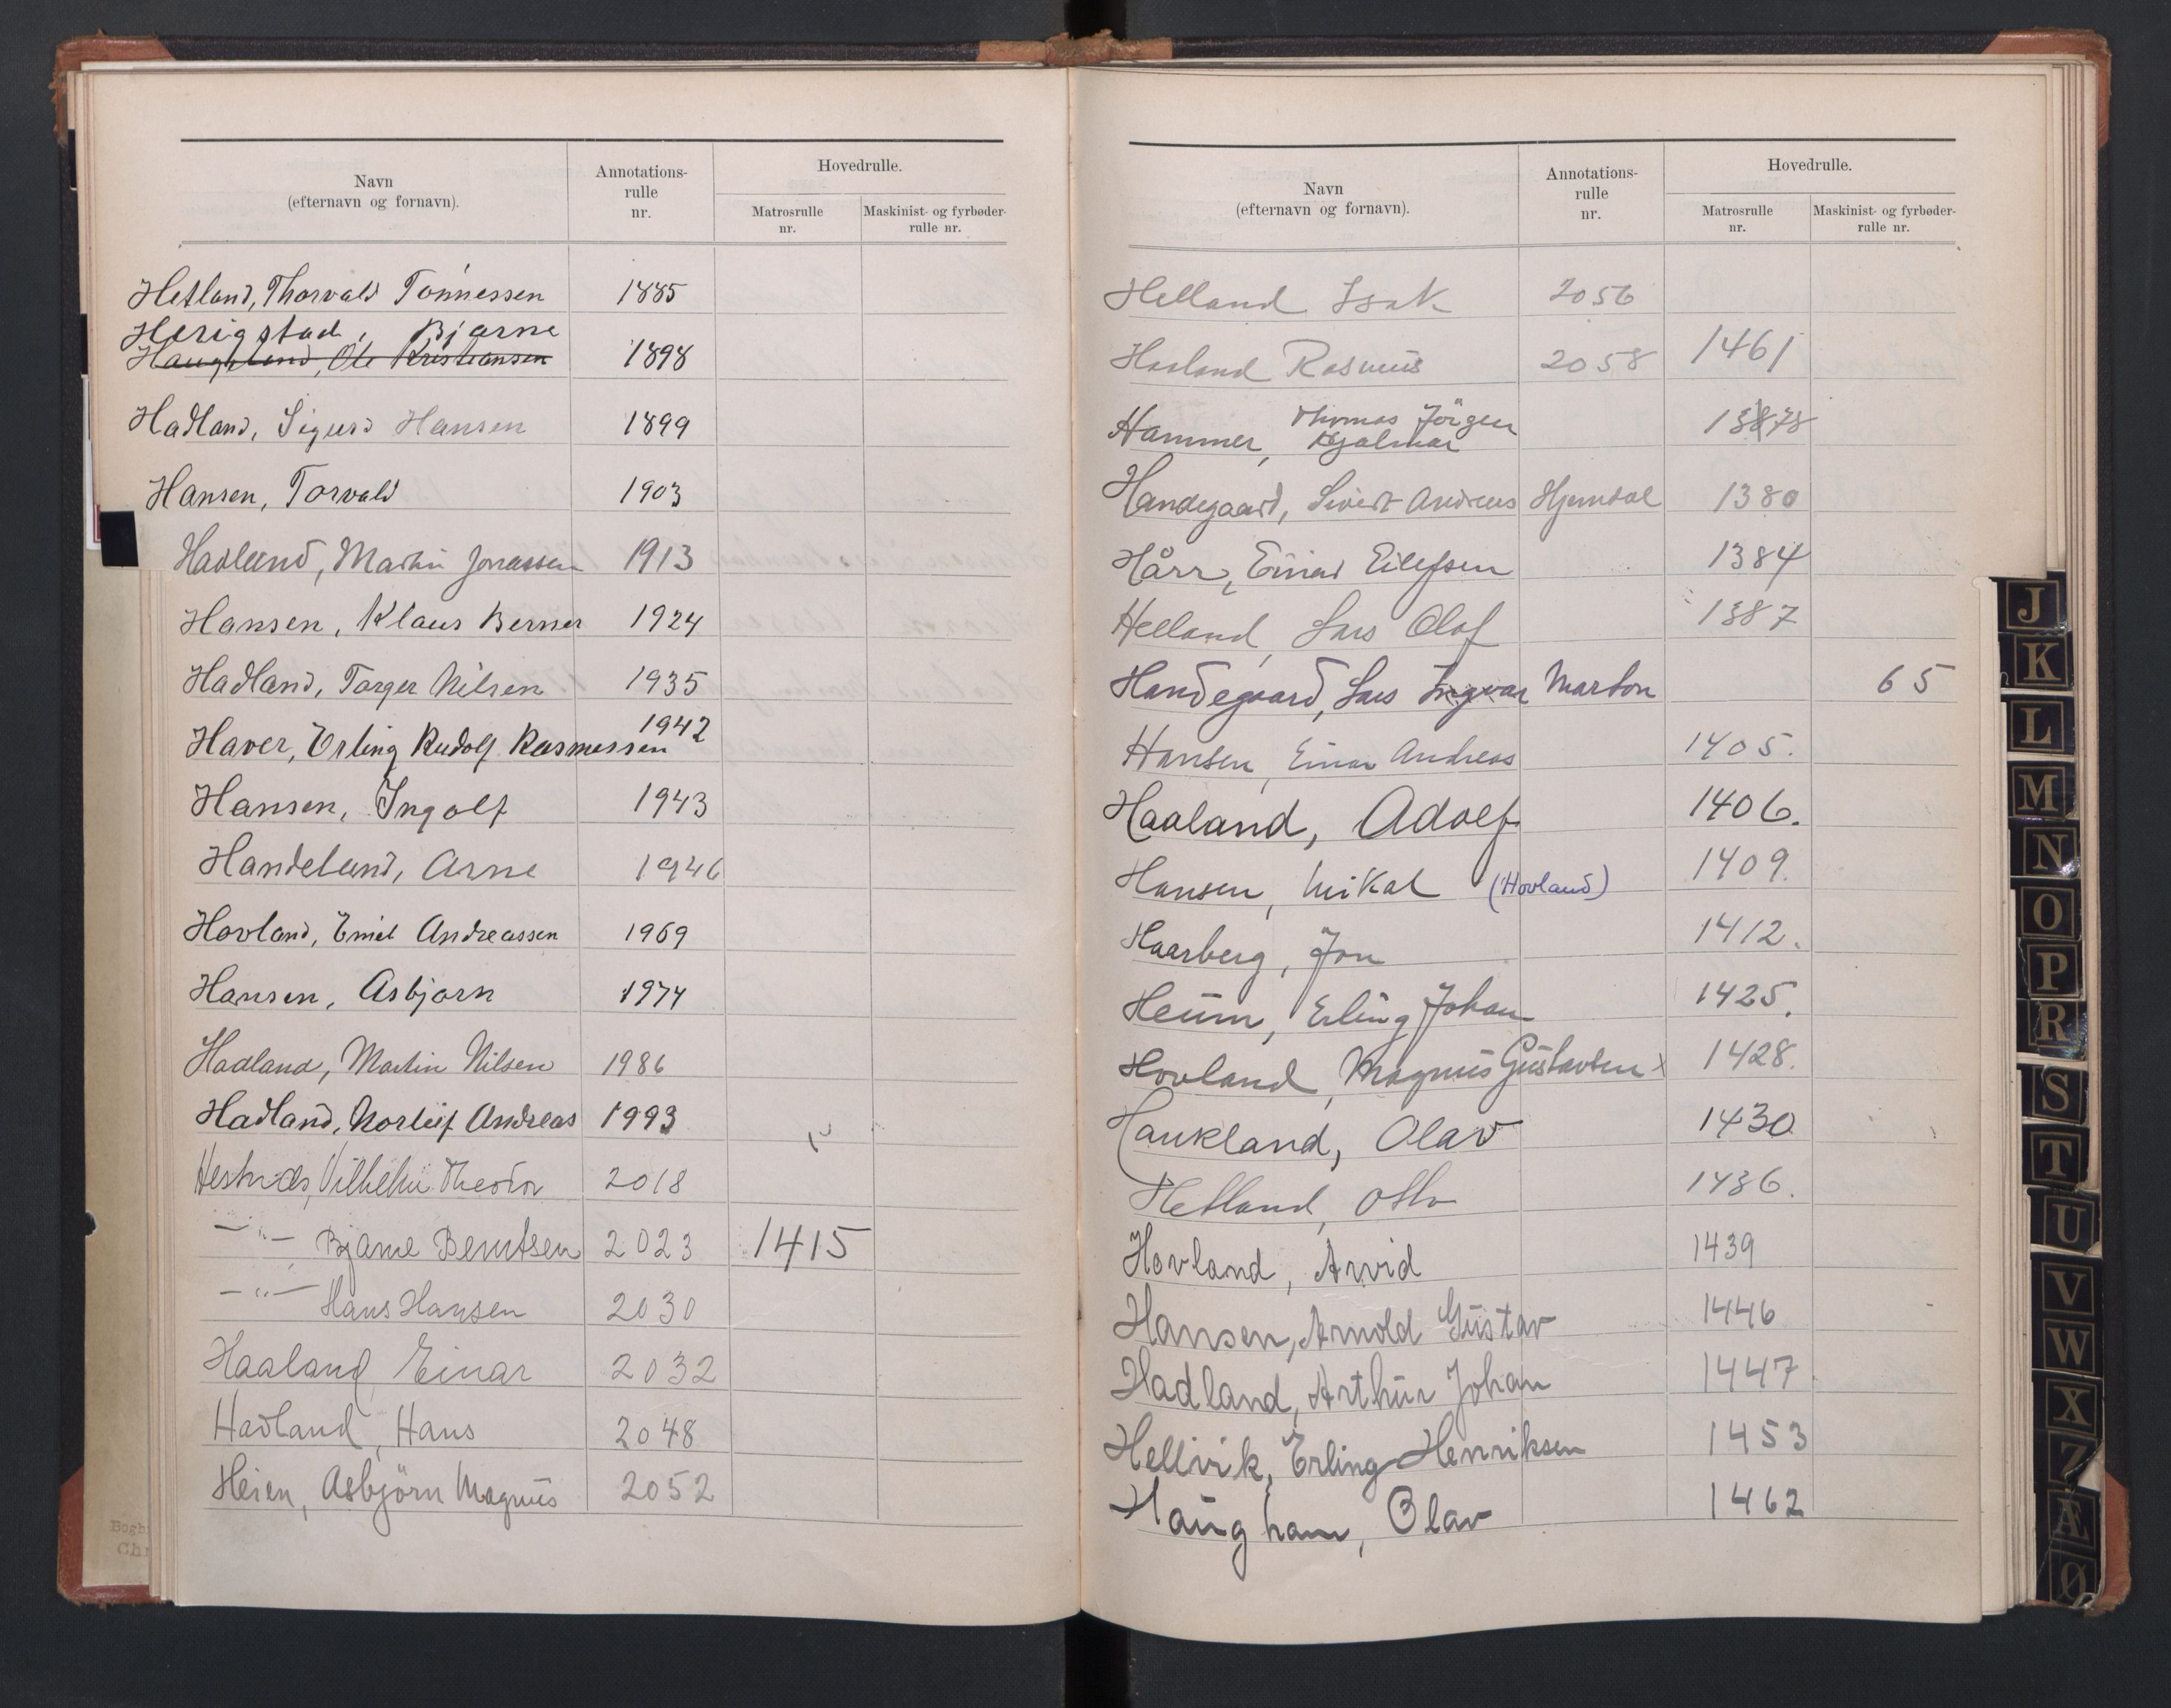 Navn
(efternavn og fornavn).
Annotations-
rulle
nr.
Hovedrulle.
Matrosrulle
nr.
Maskinist- og fyrbøder-
rulle nr.
Hetland, Thorvald Tönnessen 1885
Herigstad, Bjarne
Haughland, Ole Kristiansen 1898
Hadland, Sigurd Hansen 1899
Hansen, Torvald 1903
Hadland, Martin Jonassen 1913
Hansen, Klaus Berner 1924
Hadland, Torger Nilsen 1935
Haver, Erling Rudolf Rasmussen 1942
Hansen, Ingolf 1943
Handeland, Arne 1946
Hovland, Emil Andreassen 1969
Hansen, Asbjørn 1974
Hadland, Martin Nilsen 1986
Hadland, Norleif Andreas 1993
Vilhelm Theodor 2018
—"— Bjarne Berntsen 2023 1415
—"— Hans Hansen 2030
Haaland, Einar 2032
Hadland, Hans 2048
Heien, Asbjörn Magnus 2052
Navn
(efternavn og fornavn).
Annotations-
rulle
nr.
Hovedrulle.
Matrosrulle
nr.
Maskinist- og fyrbøder-
rulle nr.
Helland Isak 2056
Haaland Rasmus 2058 1461
Thomas Jörgen
Hammer, Hjalmar 1378
Handegaard, Sivert Andreas Hjemdal 1380
Hårr, Einar Eilefsen 1384
Helland, Lars Olaf 1387
Handegaard, Lars Ingvar Marton 65
Hansen, Einar Andreas 1405.
Haaland, Adolf 1406.
Hansen, Mikal (Hovland) 1409.
Haarberg, Jon 1412.
Heum, Erling Johan 1425.
Hovland, Magnus Gustavsen x 1428.
Haukland, Olav 1430
Hetland, Otto 1436.
Hovland, Arvid 1439
Hansen, Arnold Gustav 1446
Hadland, Arthur Johan 1447
Hellvik, Erling Henriksen 1453
Haugham, Olav 1462
J
K
L
M
N
O
P
R
S
T
U
V
W
X
Z
Æ
Ø